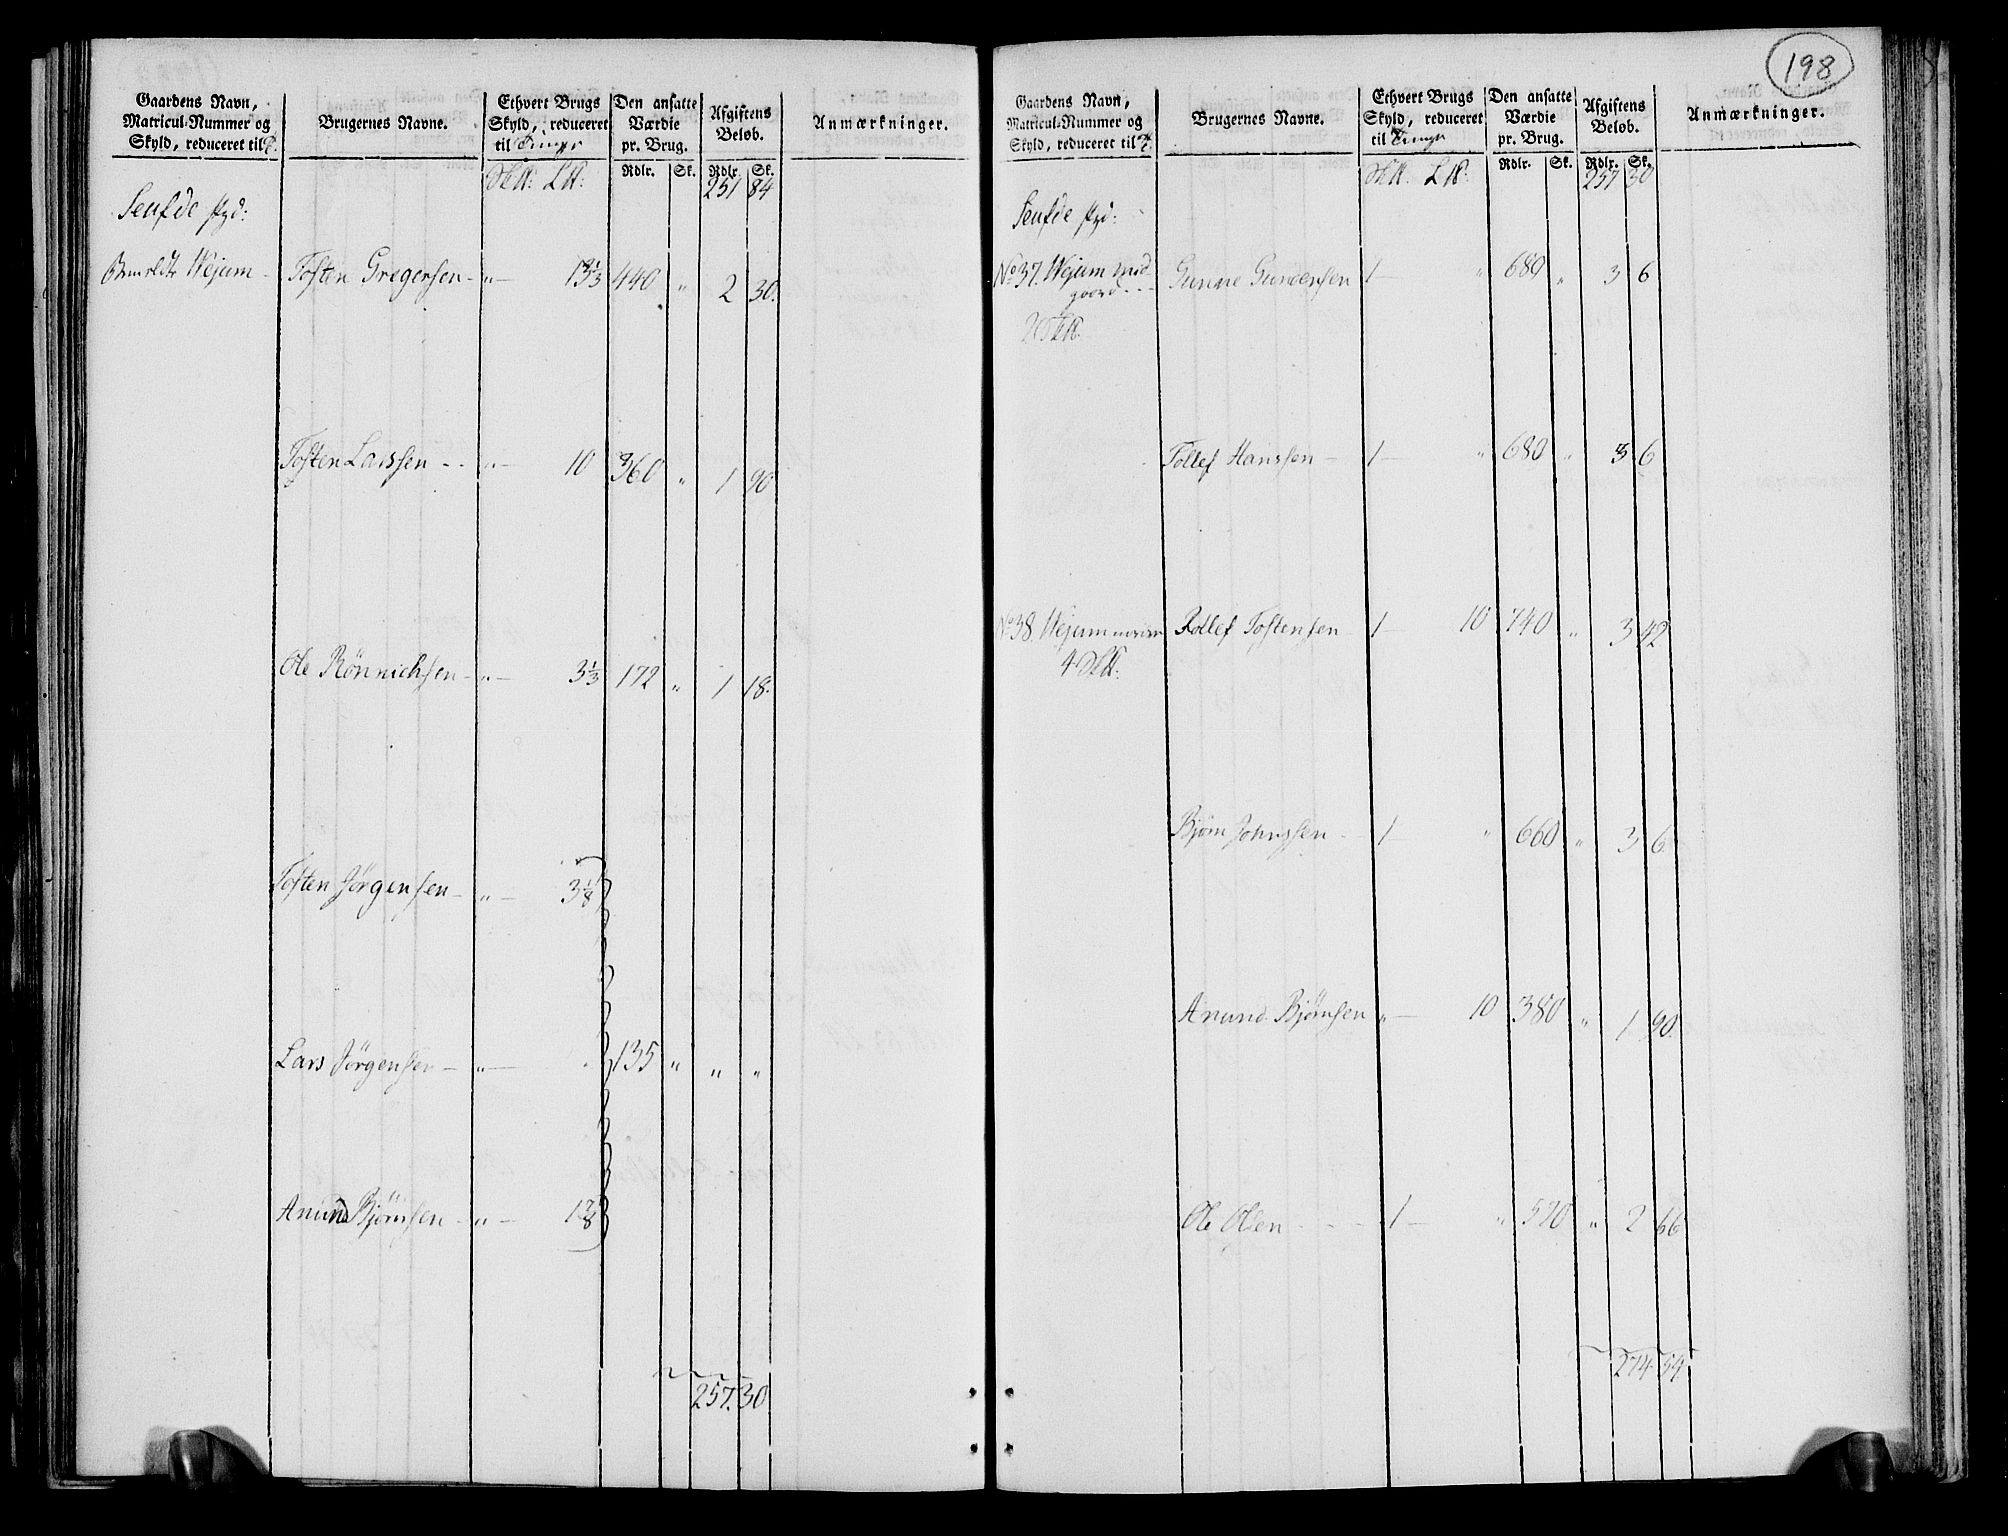 198
Gaardens Navn,
Matricul-Nummer og
Skyld, reduceret til
Brugernes Navne.
Ethvert Brugs
Skyld, reduceret
til Tunge
Den ansatte
Værdie
pr. Brug.
Afgiftens
Beløb.
Anmærkninger.
Rdlr. Sk. Rdlr. Sk.
251 84
Tosten Gregersen - „ - 13 1/3 440 „ 2 30.
Tosten Larssen - - „ - 10 360 „ 1 90.
Ole Rönnichsen - „ - 3 1/3 172 „ 1 18.
Tosten Jörgensen - „ - 3 1/8
Lars Jörgensen - „ - 135 „ „ „
Anund Björnsen - „ -
257. 30
Gaardens Navn,
Matricul-Nummer og
Skyld, reduceret til
Brugernes Navne.
Ethvert Brugs
Skyld, reduceret
til Tunge
Den ansatte
Værdie
pr. Brug.
Afgiftens
Beløb.
Anmærkninger.
Rdlr. Sk. Rdlr. Sk.
257 30
No 37. Wejum mid Gunne Gundersen 1 - „ 680 „ 3 6
gaard - - -
Tollef Hanssen - 1 - „ 680 „ 3 6
No 38 Wejum Rollef Tostensen 1 - 10 740 „ 3 42
Björn Johnssen - - 1 - „ 660 „ 3 6
Anund Björnsen „ - 10 380 „ 1 90.
Ole Olsen - - - 1 - „ 520 „ 2 66
274 54